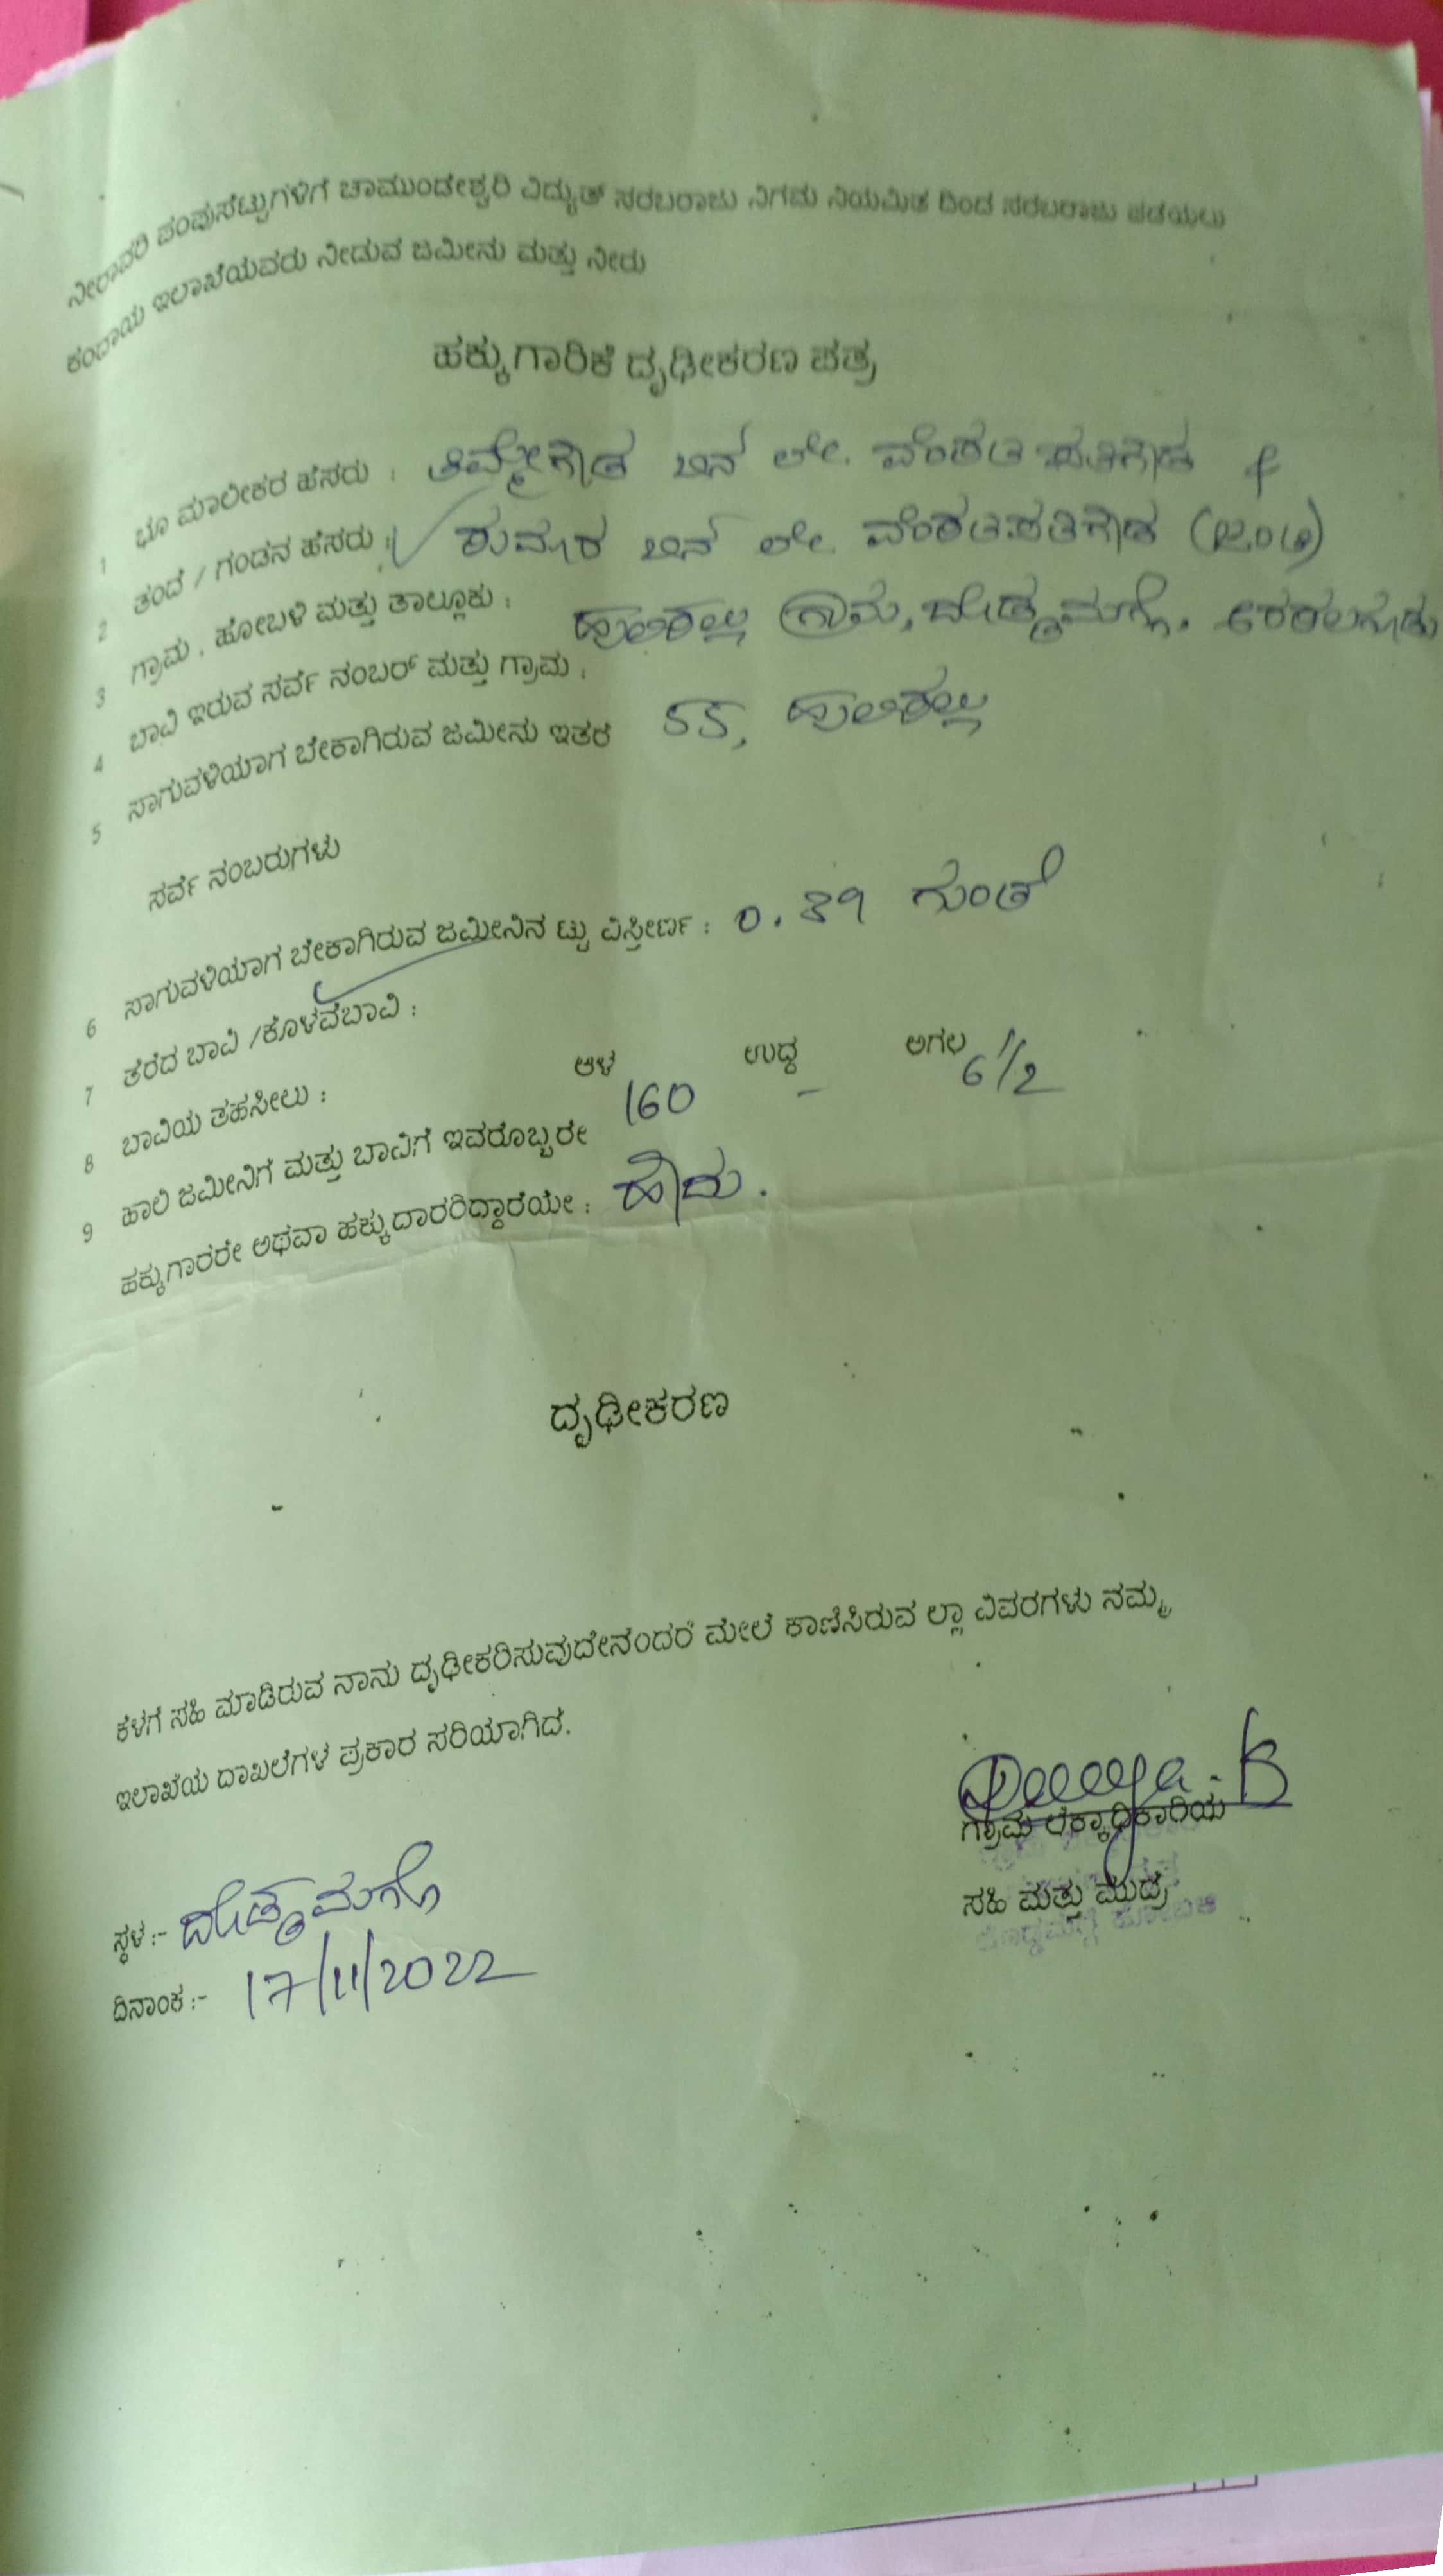 ನೀರಾವರಿ ಪಂಪುಸೆಟ್ಟುಗಳಿಗೆ ಚಾಮುಂಡೇಶ್ವರಿ ವಿದ್ಯುತ್ ಸರಬರಾಜು ನಿಗಮ ನಿಯಮಿತ ದಿಂದ ಸರಬರಾಜು ಪಡೆಯಲು
ಕಂದಾಯ ಇಲಾಖೆಯವರು ನೀಡುವ ಜಮೀನು ಮತ್ತು ನೀರು
ಹಕ್ಕುಗಾರಿಕೆ ದೃಢೀಕರಣ ಪತ್ರ
1 ಭೂ ಮಾಲೀಕರ ಹೆಸರು : ತಿಮ್ಮೇಗೌಡ ಬಿನ್ ಲೇ. ವೆಂಕಟಪತಿಗೌಡ &
2 ತಂದೆ / ಗಂಡನ ಹೆಸರು : ಕುಮಾರ ಬಿನ್ ಲೇ. ವೆಂಕಟಪತಿಗೌಡ
3 ಗ್ರಾಮ , ಹೋಬಳಿ ಮತ್ತು ತಾಲ್ಲೂಕು : ಹುಲಿಕಲ್ಲು ಗ್ರಾಮ, ದೊಡ್ಡಮಗ್ಗೆ, ಅರಕಲಗೂಡು
4 ಬಾವಿ ಇರುವ ಸರ್ವೆ ನಂಬರ್ ಮತ್ತು ಗ್ರಾಮ : 55, ಹುಲಿಕಲ್ಲು
5 ಸಾಗುವಳಿಯಾಗ ಬೇಕಾಗಿರುವ ಜಮೀನು ಇತರೆ
ಸರ್ವೆ ನಂಬರುಗಳು
6 ಸಾಗುವಳಿಯಾಗ ಬೇಕಾಗಿರುವ ಜಮೀನಿನ ಟ್ಟು ವಿಸ್ತೀರ್ಣ : 0.39 ಗುಂಟೆ
7 ತೆರೆದ ಬಾವಿ /ಕೊಳವೆಬಾವಿ :
ಆಳ ಉದ್ದ ಅಗಲ
8 ಬಾವಿಯ ತಹಸೀಲು : 160 - 6 1/2
9 ಹಾಲಿ ಜಮೀನಿಗೆ ಮತ್ತು ಬಾವಿಗೆ ಇವರೊಬ್ಬರೇ
ಹಕ್ಕುಗಾರರೇ ಅಥವಾ ಹಕ್ಕುದಾರರಿದ್ದಾರೆಯೇ : ಹೌದು.
ದೃಢೀಕರಣ
ಕೆಳಗೆ ಸಹಿ ಮಾಡಿರುವ ನಾನು ದೃಢೀಕರಿಸುವುದೇನೆಂದರೆ ಮೇಲೆ ಕಾಣಿಸಿರುವ ಲ್ಲಾ ವಿವರಗಳು ನಮ್ಮ
ಇಲಾಖೆಯ ದಾಖಲೆಗಳ ಪ್ರಕಾರ ಸರಿಯಾಗಿದೆ.
ಗ್ರಾಮ ಲೆಕ್ಕಾಧಿಕಾರಿಯ
ಸಹಿ ಮತ್ತು ಮುದ್ರೆ
ಸ್ಥಳ :- ದೊಡ್ಡಮಗ್ಗೆ
ದಿನಾಂಕ :- 17/11/2022